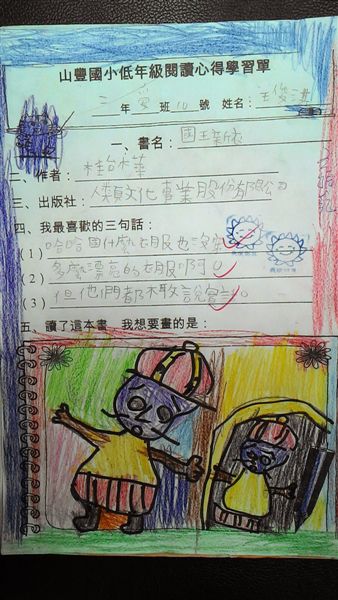 山豐國小低年級閱讀心得學習單
三年愛班10號 姓名：王俊
一、書名：國王新衣
二、作者：桂台華
三、出版社：人類文化事業股份有限公司
四、我最喜歡的三句話：
（1）哈哈國什麼衣服也沒穿
（2）多麼漂亮的衣服啊
（3）但他們都不敢說實話。
五、讀了這本書，我想要畫的是：